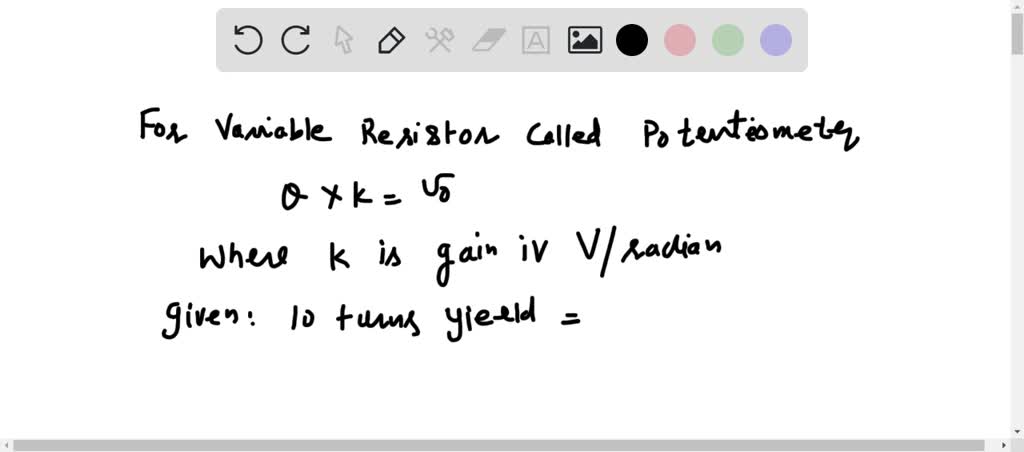 A
For Variable Resistor Called Potentiometer
θ × k = v₀
Where k is gain in V/radian
given: 10 turns yield =